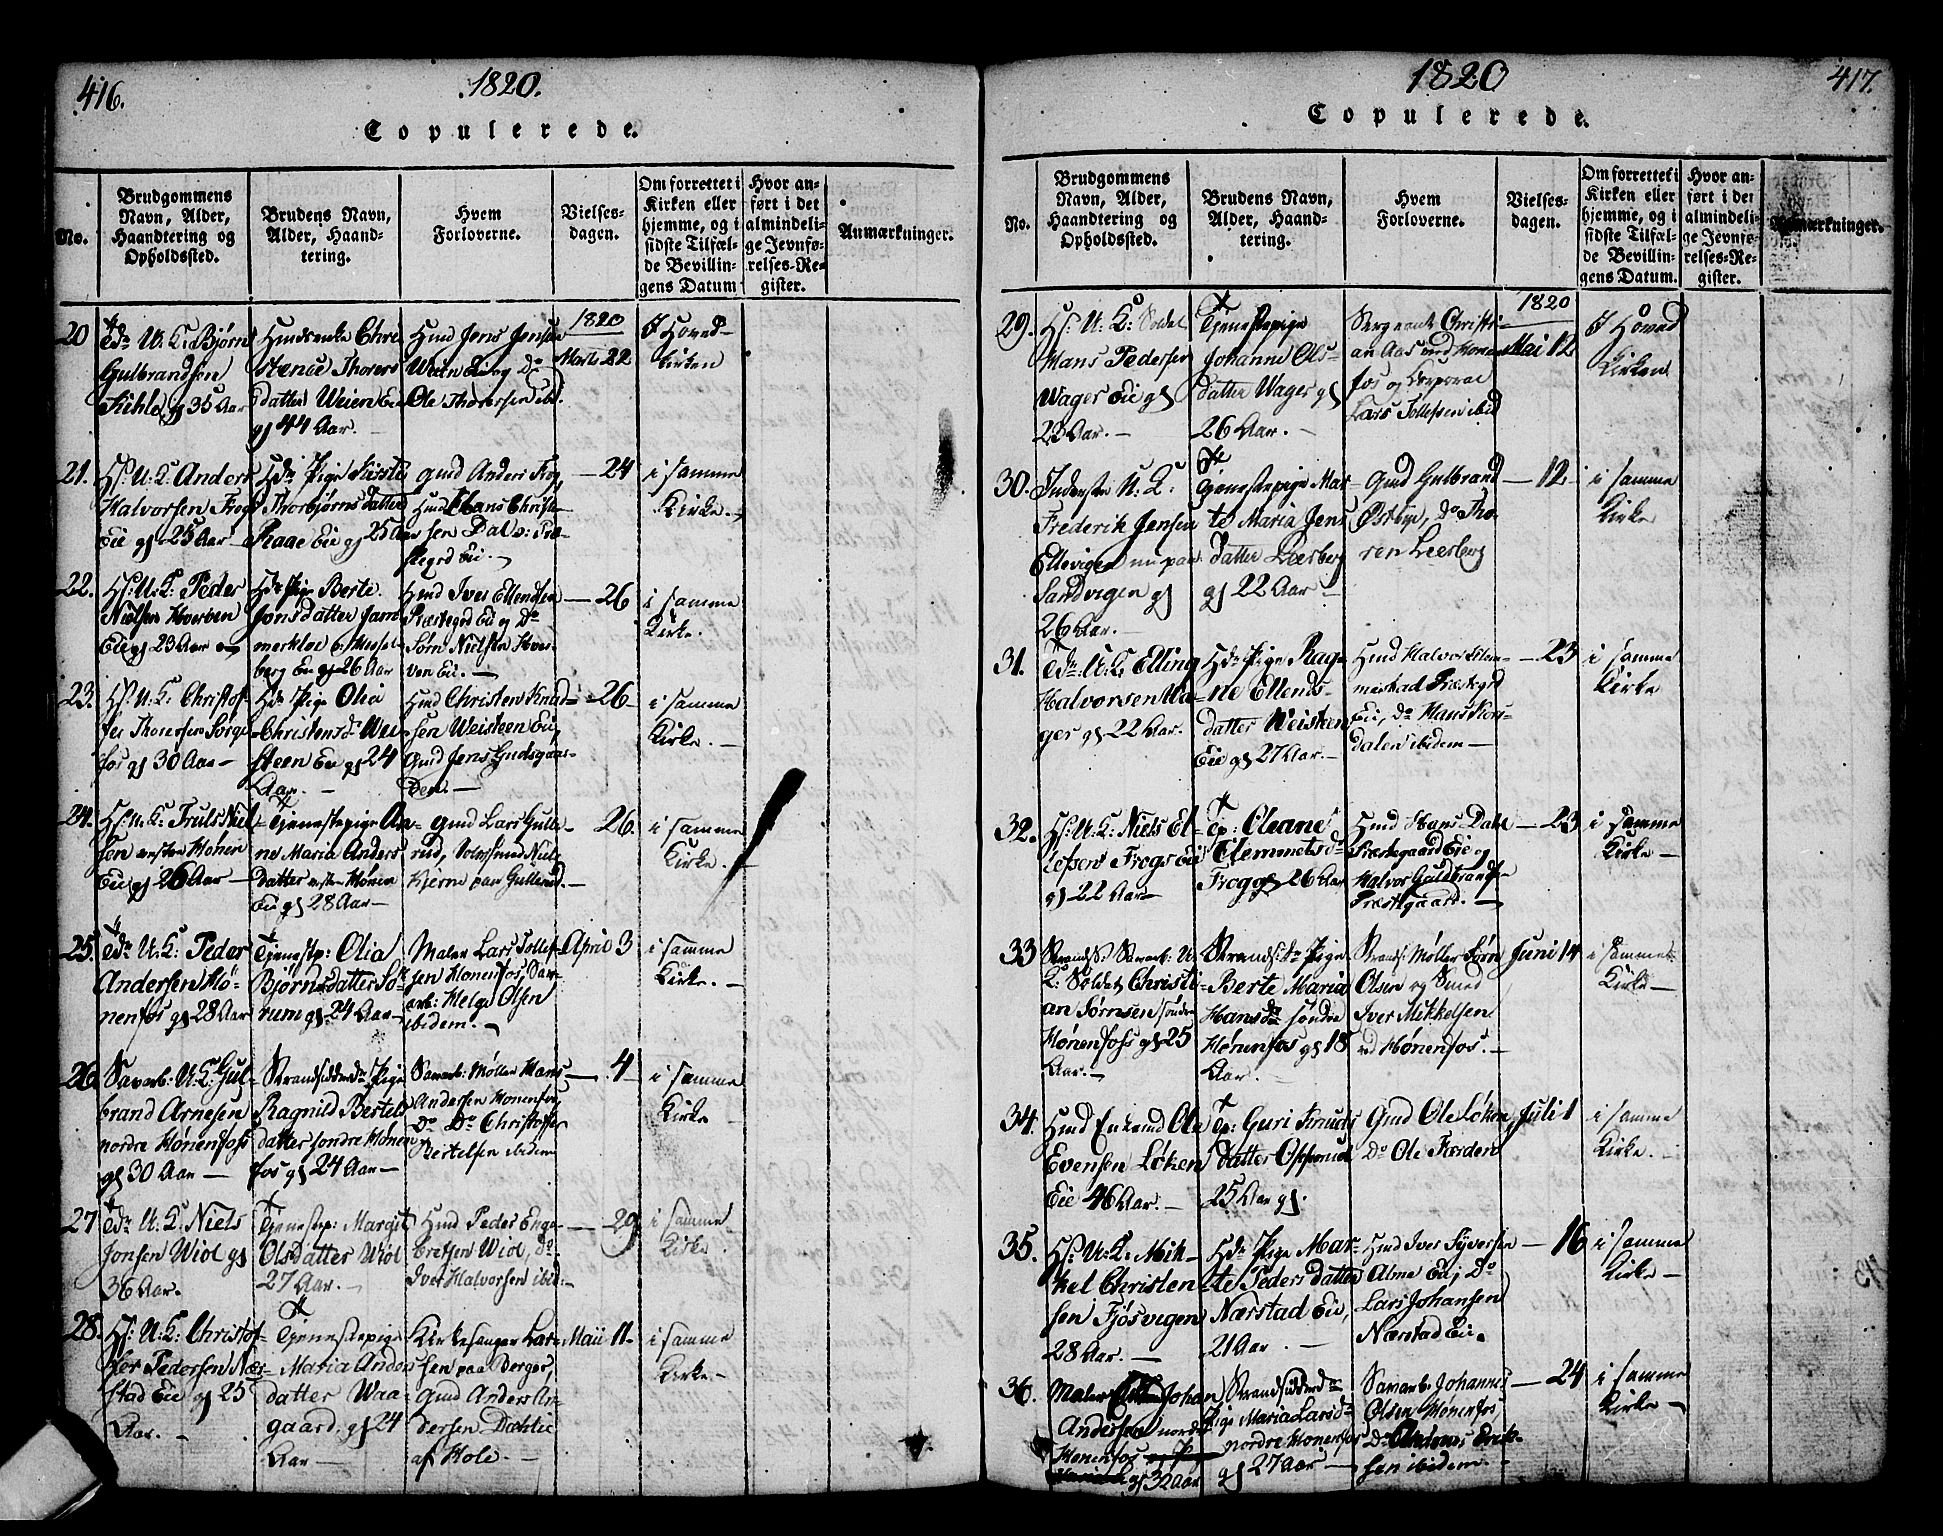 416.
1820.
Copulerede.
No.
Brudgommens
Navn, Alder,
Haandtering og
Opholdssted.
Brudens Navn,
Alder, Haand-
tering.
Hvem
Forloverne.
Vielses-
dagen.
Om forrettet i
Kirken eller
hjemme, og i
sidste Tilfæl-
de Bevillin-
gens Datum
Hvor an-
ført i det
almindeli-
ge Jevnfø-
relses-Re-
gister.
Anmærkninger.
20
U: K: Bjørn
Gulbrandsen
Kihle gl 35 Aar
Chri-
stence Thorers
datter Weien Eie
gl 44 Aar.
Hmd Jens Jensen
Weien Eie og Do
Ole Thoresen ibd.
1820
Marti 22
I Hoved-
kirken
21.
Hs: U: K: Anders
Halvorsen Frog
Eie gl 25 Aar
Pige Kirsti
Thorbjørns datter
Raae Eie gl 25 Aar
Gmd Anders Frog,
Hmd Hans Christen-
sen Dal, Præ-
stegrd Eie.
24
i samme
Kirke.
22.
Hs: U: K: Peder
Nielsen Hverven
Eie gl 23 Aar
Pige Berte
Jonsdatter
berg Eie gl 26 Aar
Hmd Iver Ellendsen
Præstegrd Eie og Do
Sørn Nielsen Hver-
ven Eie.
26
i samme
Kirke.
23.
Hs: U: K: Christof-
fer Thoresen Sørge-
fos gl 30 Aar
Pige Olia
Christensdr Wei-
steen Eie gl 24
Aar.
Hmd Christen Knud-
sen Weisteen Eie,
Gmd Jens Gudsgaar-
den.
26
i samme
Kirke.
24.
Hs: U: K: Truls Niel-
sen Honen
Eie gl 26 Aar
Tjenestepige An-
ne Maria Anders
datter Hønen
Eie gl 28 Aar
Gmd Lars Gulle-
rud, Niels
Kjerne paa Gullerud.
26.
i samme
Kirke.
25.
U: K: Peder
Andersen Hø-
nenfos gl 28 Aar
Tjenestp: Olia
Bjørnsdatter So-
rum gl 24 Aar
Maler Lars Tollef-
sen Honenfos, Sav-
arb: Helge Olsen
ibidem.
April 3
i samme
Kirke.
26
Savarb: U: K: Gul-
brand Arnesen
nordre Hønenfoss
gl 30 Aar
Strandsidder Pige
Ragnild Bertels
datter søndre Hønen
fos gl 24 Aar
Savarb: Møller Hans
Andersen Honenfos,
Do Do Christoffer
Bertelsen ibidem
4
i samme
Kirke
27
U: K: Niels
Jonsen Wiol gl
36 Aar.
Tjenestep: Margit
Olsdatter Wiol
27 Aar.
Hmd Peder Enge-
bretsen Wiol, do
Iver Halvorsen ibid:
29
i samme
Kirke
28.
Hs: U: K: Christof-
fer Pedersen Nær-
stad Eie gl 25
Aar.
Tjenestepige
Maria Anders
datter Waa-
gaard, gl 24
Aar
Kirkesanger Lar-
sen paa Berger,
Gmd Anders An-
dersen Dæhlie
af Hole.
Maii 11.
i samme
Kirke
1820
417.
Copulerede.
No.
Brudgommens
Navn, Alder,
Haandtering og
Opholdssted.
Brudens Navn,
Alder, Haand-
tering.
Hvem
Forloverne.
Vielses-
dagen.
Om forrettet i
Kirken eller
hjemme, og i
sidste Tilfæl-
de Bevillin-
gens Datum.
Hvor an-
ført i det
almindeli-
ge Jevnfø-
relses-Re-
gister.
Anmærkninger.
29.
Hs: U: K: Soldat
Hans Pedersen
Wager Eie gl
23 Aar.
Tjenestepige
Johanne Ols-
datter Wager gl
26 Aar.
Sergeant Christi-
an Aas ved Honen-
fos og Corporal
Lars Tollefsen ibid
1820
Mai 12
I Hoved
Kirken
30.
Inderste U: K:
Frederik Jensen
Ellevigen nu paa
Sandvigen gl
26 Aar.
Tjenestepige Mar-
te Maria Jens
datter Leesberg
gl 22 Aar
Gmd Gulbrand
Østbye, Do Tho-
ren Leesberg
12
i samme
Kirke
31.
U: K: Elling
Halvorsen Wa-
ger gl 22 Aar.
Pige Rag-
ne Ellends-
datter Weisteen
Eie gl 27 Aar.
Hmd Halvor Hem-
mestad Præstegrd
Eie, Do Hans Kors-
dalen ibidem
23
i samme
Kirke
32.
Hs: U: K: Niels El-
lefsen Frogs Eie
gl 22 Aar
Tp: Oleane
Clemmetsd
Frog gl 26 Aar
Hmd Hans Dahl
Præstegaard Eie og
Halvor Guldbrands.
Præstegaard.
23
i samme
Kirke
33
Strands: Savarb: U:
K: Soldat Christi-
an Sørnsen søndre
Hønenfoss gl 25
Aar.
Strandsi Pige
Berte Maria
Hansdr søndre
Hønenfos gl 18
Aar.
Strands Møller Sørn
Olsen og Smed
Iver Mikkelsen
ved Hønenfos.
Juni 14
i samme
Kirke
34.
Hmd Enkemd Ole
Evensen Løken
Eie 46 Aar.
Tp: Guri Knuds
datter Opperud
25 Aar gl.
Gmd Ole Løken,
Do Ole Færden
Juli 1
i samme
Kirke.
35.
Hs: U: K: Mik-
kel Christen-
sen Fjøsvigen
28 Aar.
Pige Mar-
te Peders datter
Nærstad Eie,
21 Aar.
Hmd Iver Syversen
Alme Eie, Do
Lars Johansen
Nærstad Eie.
16
i samme
Kirke
36.
Maler Johan
Andersen nordre
Honenfos
gl 32 Aar
Strandsidder
Pige Maria Larsdr
nordre Honenfos
gl 27 Aar
Savarb: Johannes
Olsen Honenfos,
Do Erik-
sen ibidem.
24
i samme
Kirke